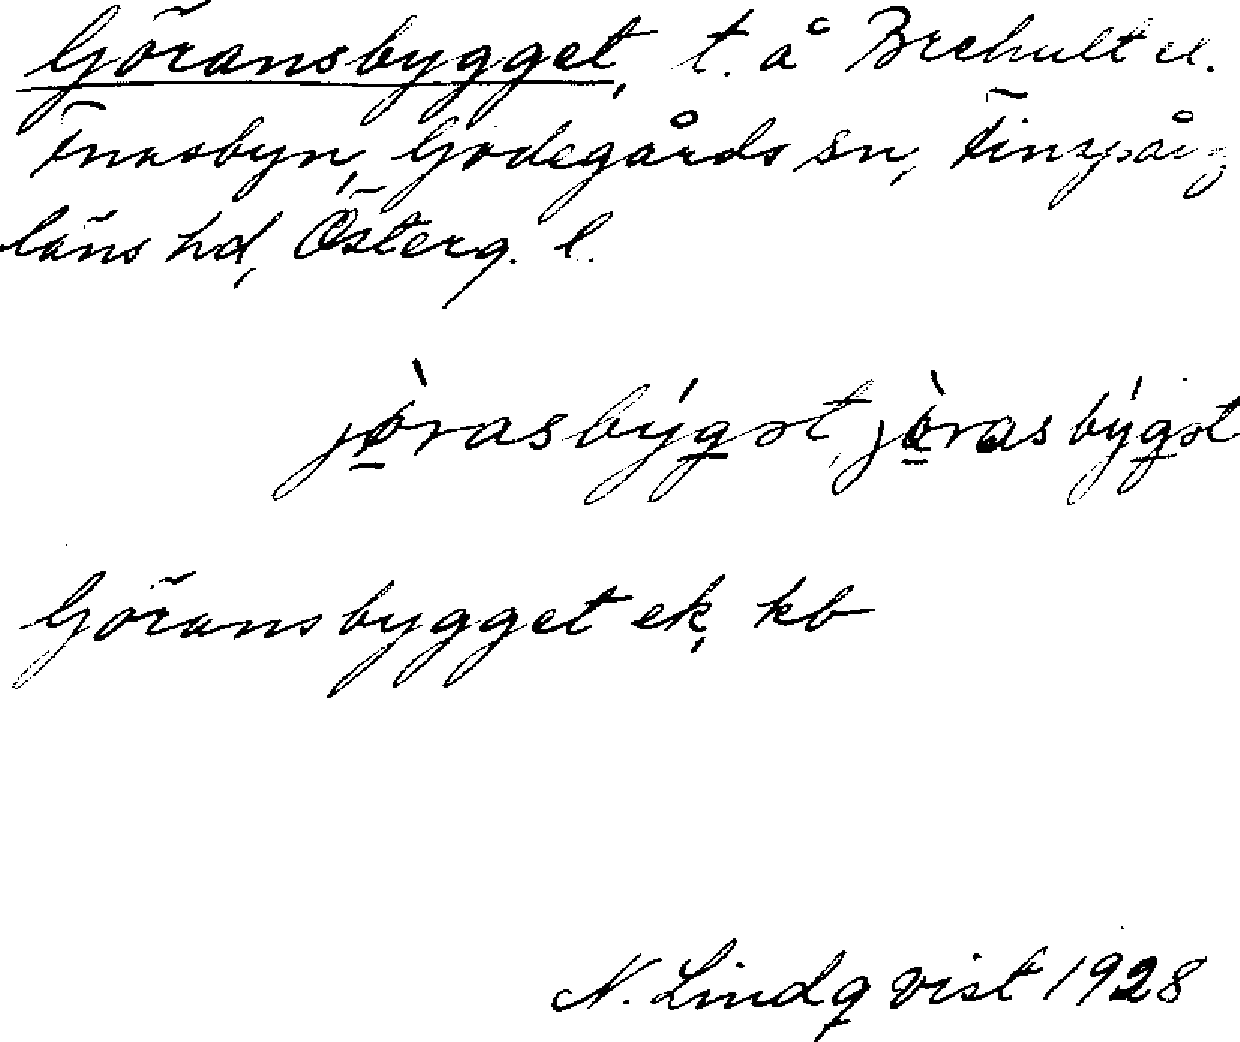 Göransbygget, t. å Brehult el.
Tnasbyn, Godegårds sn, Finspång
läns hd, Österg. l.
jòrasbýgət, jòrasbýgət
Göransbygget ek, kb
N. Lindqvist 1928